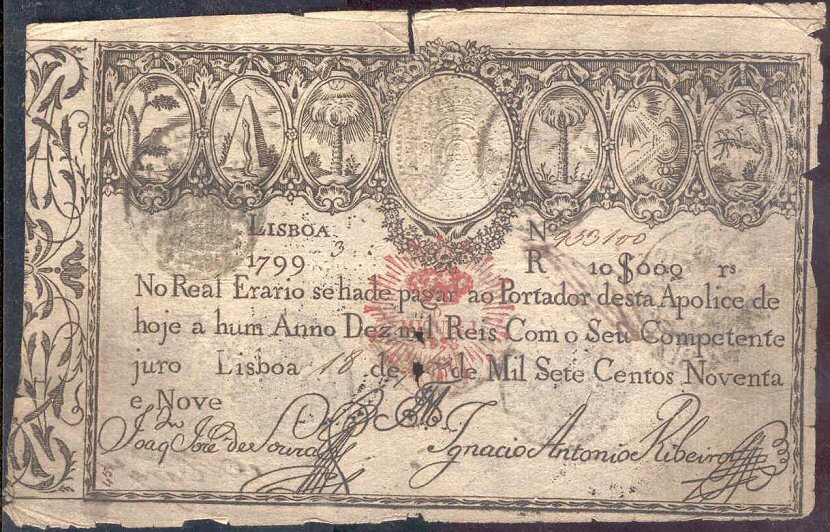 LISBOA
3
1799
Nº 933100
R 10$000 rs
No Real Erario se hade pagar ao Portador desta Apolice de
hoje a hum Anno Dez mil Reis Com o Seu Competente
juro Lisboa 18 de de Mil Sete Centos Noventa
e Nove
Joaq José de Souza
Ignacio Antonio Ribeiro